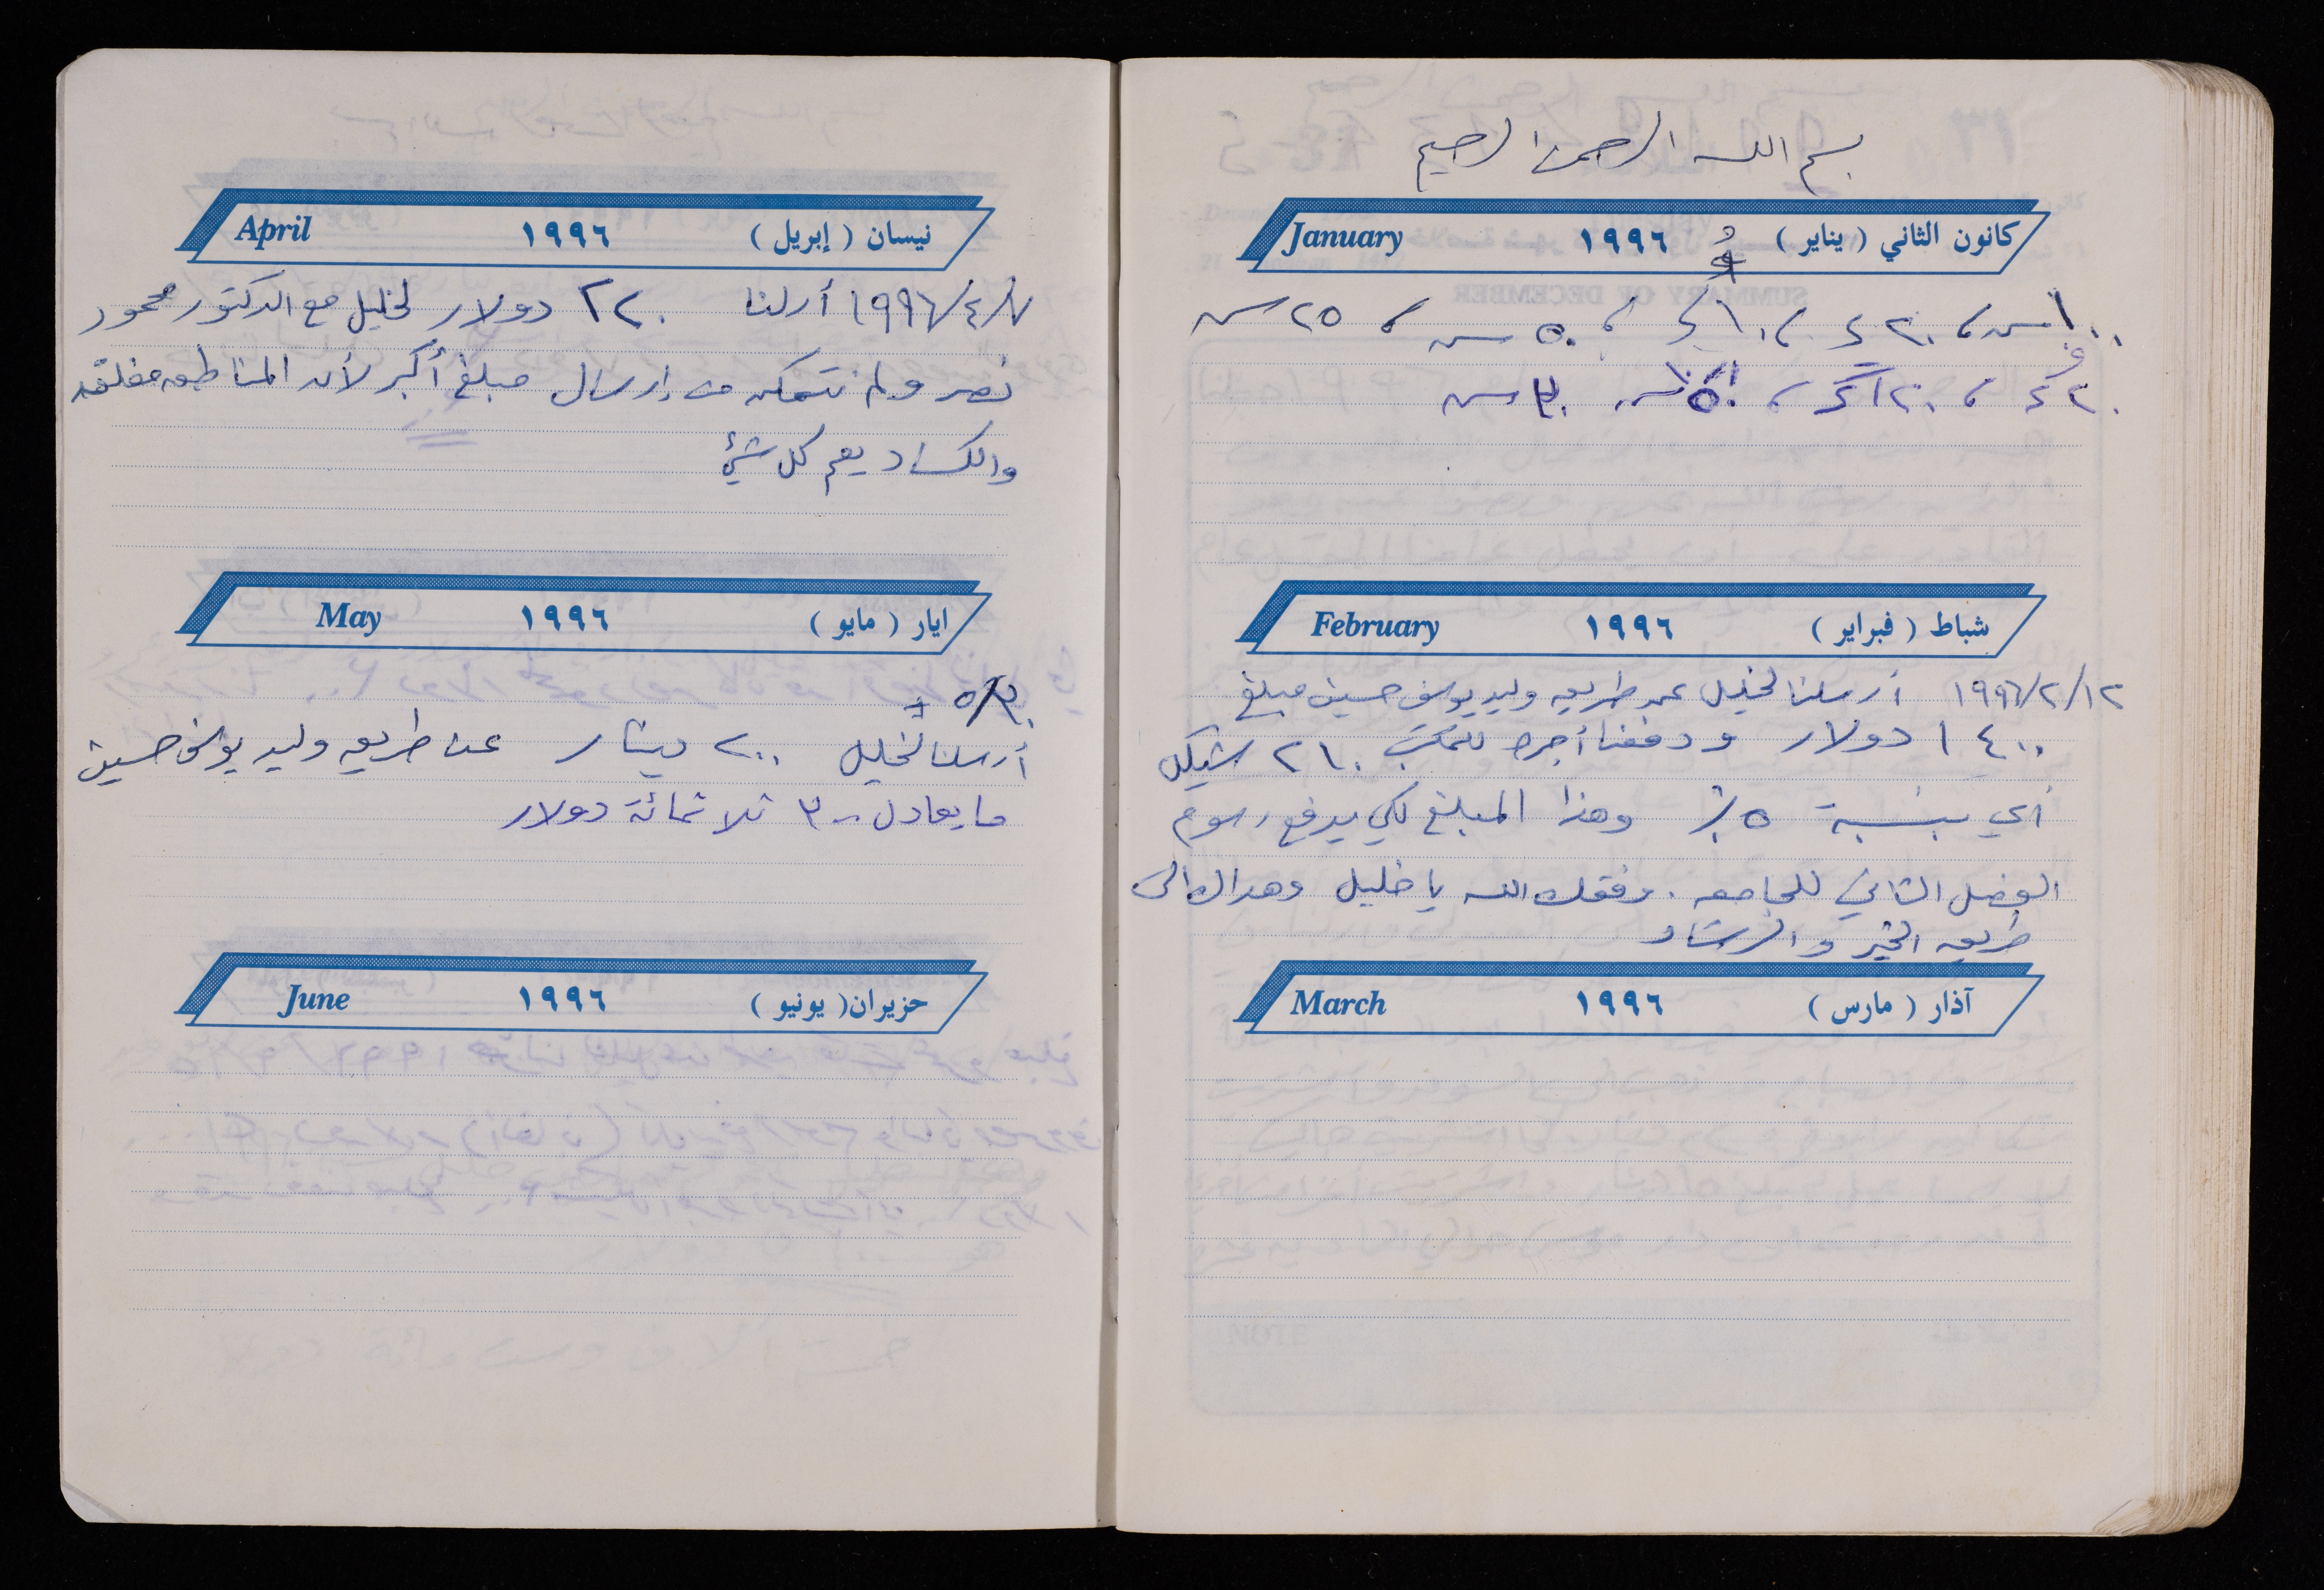 بسم الله الرحمن الرحيم
كانون الثاني ( يناير ) ١٩٩٦ January
١٠٠ س، ٢٠ ع، ١٠ ، ٥٠ س، ٢٥ س
٢٠ ع، ٣٠ س
شباط ( فبراير ) ١٩٩٦ February
١٩٩٦/٢/١٢ أرسلنا لخليل عن طريق وليد يوسف حسين مبلغ
١٤٠٠ دولار ودفعنا أجره للمكتب ٢١٠ شيكل
أي بنسبة ٥٪ وهذا المبلغ لكي يدفع رسوم
الفصل الثاني للجامعه. وفقك الله يا خليل وهداك الى
طريق الخير والرشاد
آذار ( مارس ) ١٩٩٦ March
نيسان ( إبريل ) ١٩٩٦ April
١٩٩٦/٤/٧ أرلنا ٢٢٠ دولار لخليل مع الدكتور محمود
نصر ولم نتمكن من إرسال مبلغ أكبر لأن المناطق مغلقه
والكساد يعم كل شيئ
ايار ( مايو ) ١٩٩٦ May
٥/٣٠
أرسلنا لخليل ٢٠٠ دينار عن طريق وليد يوسف حسين
ما يعادل ٣٠٠ ثلاثمائة دولار
حزيران ( يونيو ) ١٩٩٦ June